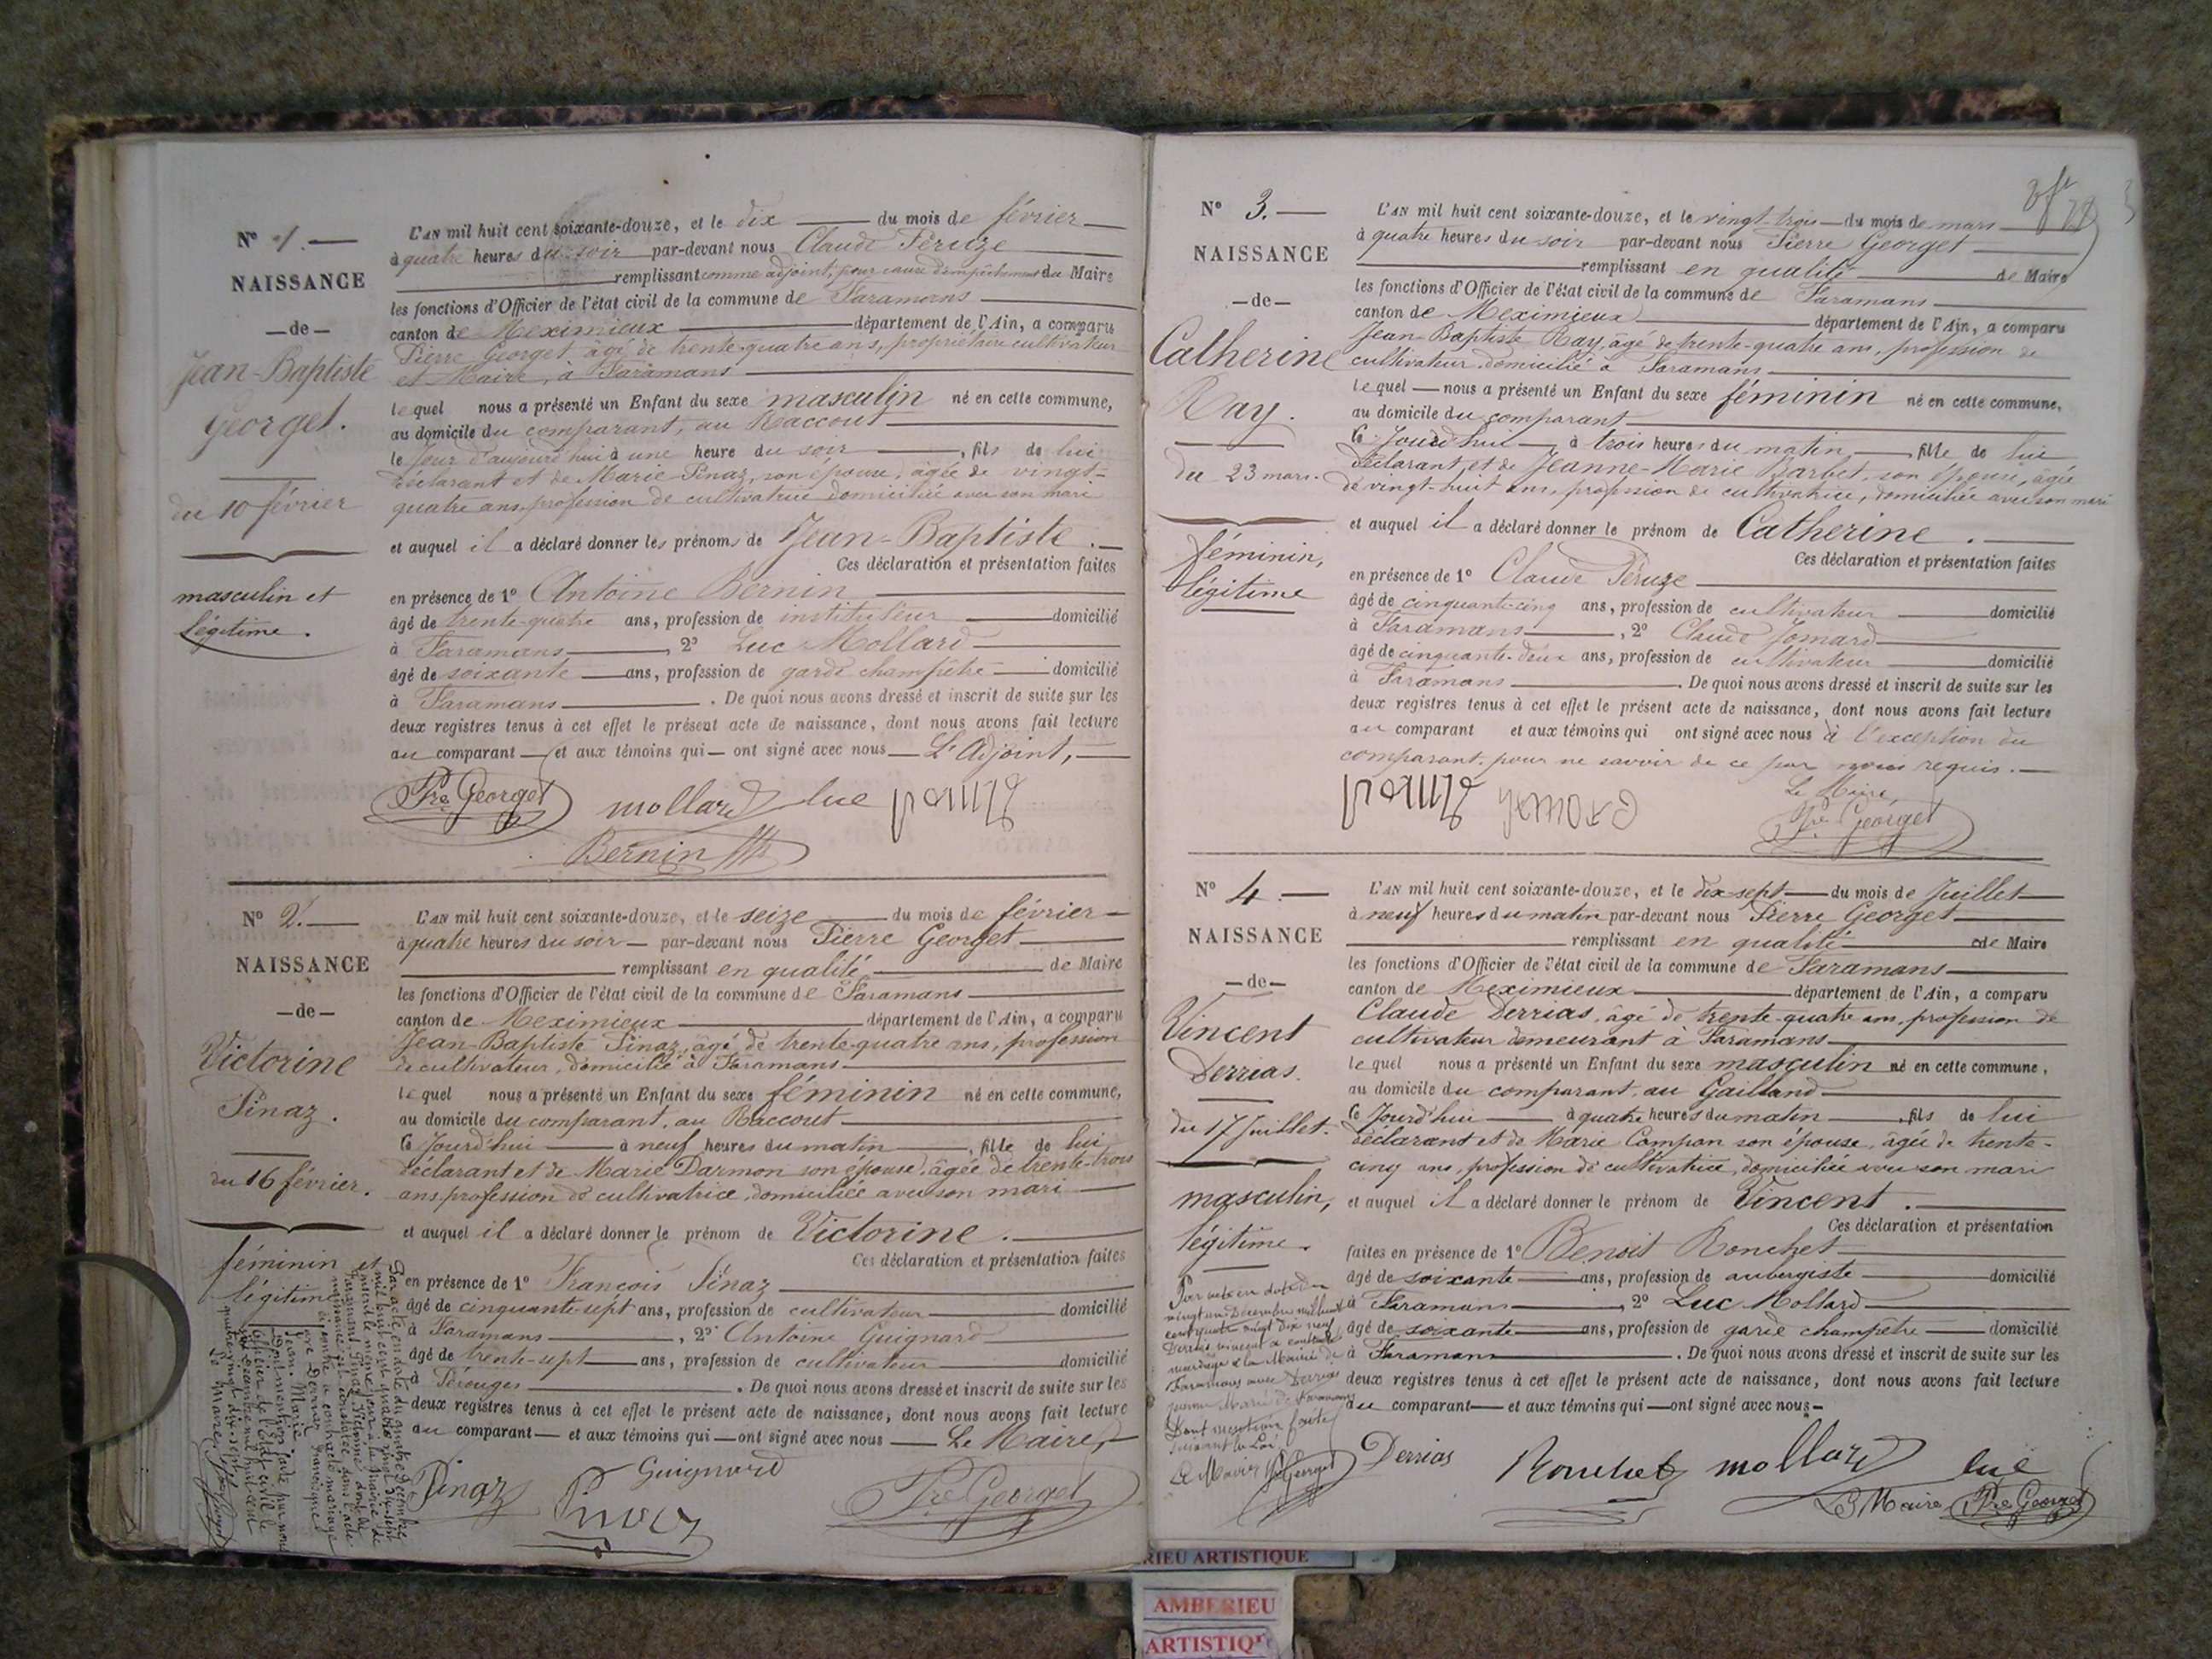 N° 1.
NAISSANCE
de
Jean-Baptiste
Georget.
du 10 février
masculin et
légitime.
L'AN mil huit cent soixante-douze, et le dix du mois de février
à quatre heures du soir par-devant nous Claude Péruze
remplissant comme adjoint, pour cause d'empêchement du Maire
les fonctions d'Officier de l'état civil de la commune de Faramans
canton de Meximieux département de l'Ain, a comparu
Pierre Georget, âgé de trente-quatre ans, propriétaire cultivateur
et Maire, à Faramans
lequel nous a présenté un Enfant du sexe masculin né en cette commune,
au domicile du comparant, au Raccout
le jour d'aujourd'hui à une heure du soir, fils de lui
déclarant et de Marie Pinaz, son épouse, âgée de vingt-
quatre ans, profession de cultivatrice domiciliée avec son mari
et auquel il a déclaré donner les prénoms de Jean-Baptiste.
Ces déclaration et présentation faites
en présence de 1° Antoine Bernin
âgé de trente-quatre ans, profession de instituteur domicilié
à Faramans, 2° Luc Mollard
âgé de soixante ans, profession de garde champêtre domicilié
à Faramans. De quoi nous avons dressé et inscrit de suite sur les
deux registres tenus à cet effet le présent acte de naissance, dont nous avons fait lecture
au comparant et aux témoins qui ont signé avec nous L'Adjoint,
Pre Georget mollard luc
Bernin
N° 2.
NAISSANCE
de
Victorine
Pinaz.
du 16 février.
féminin et
légitime
L'AN mil huit cent soixante-douze, et le seize du mois de février
à quatre heures du soir par-devant nous Pierre Georget
remplissant en qualité de Maire
les fonctions d'Officier de l'état civil de la commune de Faramans
canton de Meximieux département de l'Ain, a comparu
Jean-Baptiste Pinaz, âgé de trente-quatre ans, profession
de cultivateur, domicilié à Faramans
lequel nous a présenté un Enfant du sexe féminin né en cette commune,
au domicile du comparant, au Raccout
Ce Jourd'hui à neuf heures du matin, fille de lui
déclarant et de Marie Darmon son épouse, âgée de trente-trois
ans, profession de cultivatrice, domiciliée avec son mari
et auquel il a déclaré donner le prénom de Victorine.
Ces déclaration et présentation faites
en présence de 1° François Pinaz
âgé de cinquante-sept ans, profession de cultivateur domicilié
à Faramans, 2° Antoine Guignard
âgé de trente-sept ans, profession de cultivateur domicilié
à Pérouges. De quoi nous avons dressé et inscrit de suite sur les
deux registres tenus à cet effet le présent acte de naissance, dont nous avons fait lecture
au comparant et aux témoins qui ont signé avec nous Le Maire,
Pinaz Guignard Pre Georget
N° 3.
NAISSANCE
de
Catherine
Ray.
du 23 mars.
féminin,
légitime
L'AN mil huit cent soixante-douze, et le vingt-trois du mois de mars
à quatre heures du soir par-devant nous Pierre Georget
remplissant en qualité de Maire
les fonctions d'Officier de l'état civil de la commune de Faramans
canton de Meximieux département de l'Ain, a comparu
Jean-Baptiste Ray, âgé de trente-quatre ans, profession de
cultivateur, domicilié à Faramans
lequel nous a présenté un Enfant du sexe féminin né en cette commune,
au domicile du comparant
Ce Jourd'hui à trois heures du matin, fille de lui
déclarant, et de Jeanne-Marie Barbet, son épouse, âgée
de vingt-huit ans, profession de cultivatrice, domiciliée avec son mari
et auquel il a déclaré donner le prénom de Catherine.
Ces déclaration et présentation faites
en présence de 1° Claude Péruze
âgé de cinquante-cinq ans, profession de cultivateur domicilié
à Faramans, 2° Claude Jomard
âgé de cinquante-deux ans, profession de cultivateur domicilié
à Faramans. De quoi nous avons dressé et inscrit de suite sur les
deux registres tenus à cet effet le présent acte de naissance, dont nous avons fait lecture
au comparant et aux témoins qui ont signé avec nous à l'exception du
comparant, pour ne savoir de ce par nous requis.
Le Maire,
Pre Georget
N° 4.
NAISSANCE
de
Vincent
Derrias.
du 17 Juillet.
masculin,
légitime.
L'AN mil huit cent soixante-douze, et le dix-sept du mois de Juillet
à neuf heures du matin par-devant nous Pierre Georget
remplissant en qualité de Maire
les fonctions d'Officier de l'état civil de la commune de Faramans
canton de Meximieux département de l'Ain, a comparu
Claude Derrias, âgé de trente-quatre ans, profession de
cultivateur demeurant à Faramans
lequel nous a présenté un Enfant du sexe masculin né en cette commune,
au domicile du comparant, au Gailland
Ce Jourd'hui à quatre heures du matin, fils de lui
déclarant et de Marie Compan son épouse, âgée de trente-
cinq ans, profession de cultivatrice, domiciliée avec son mari
et auquel il a déclaré donner le prénom de Vincent.
Ces déclaration et présentation
faites en présence de 1° Benoit Ronchet
âgé de soixante ans, profession de aubergiste domicilié
à Faramans, 2° Luc Mollard
âgé de soixante ans, profession de garde champêtre domicilié
à Faramans. De quoi nous avons dressé et inscrit de suite sur les
deux registres tenus à cet effet le présent acte de naissance, dont nous avons fait lecture
au comparant et aux témoins qui ont signé avec nous
Derrias Ronchet mollard luc
Le Maire Pre Georget
RIEU ARTISTIQUE
AMBERIEU
ARTISTIQ